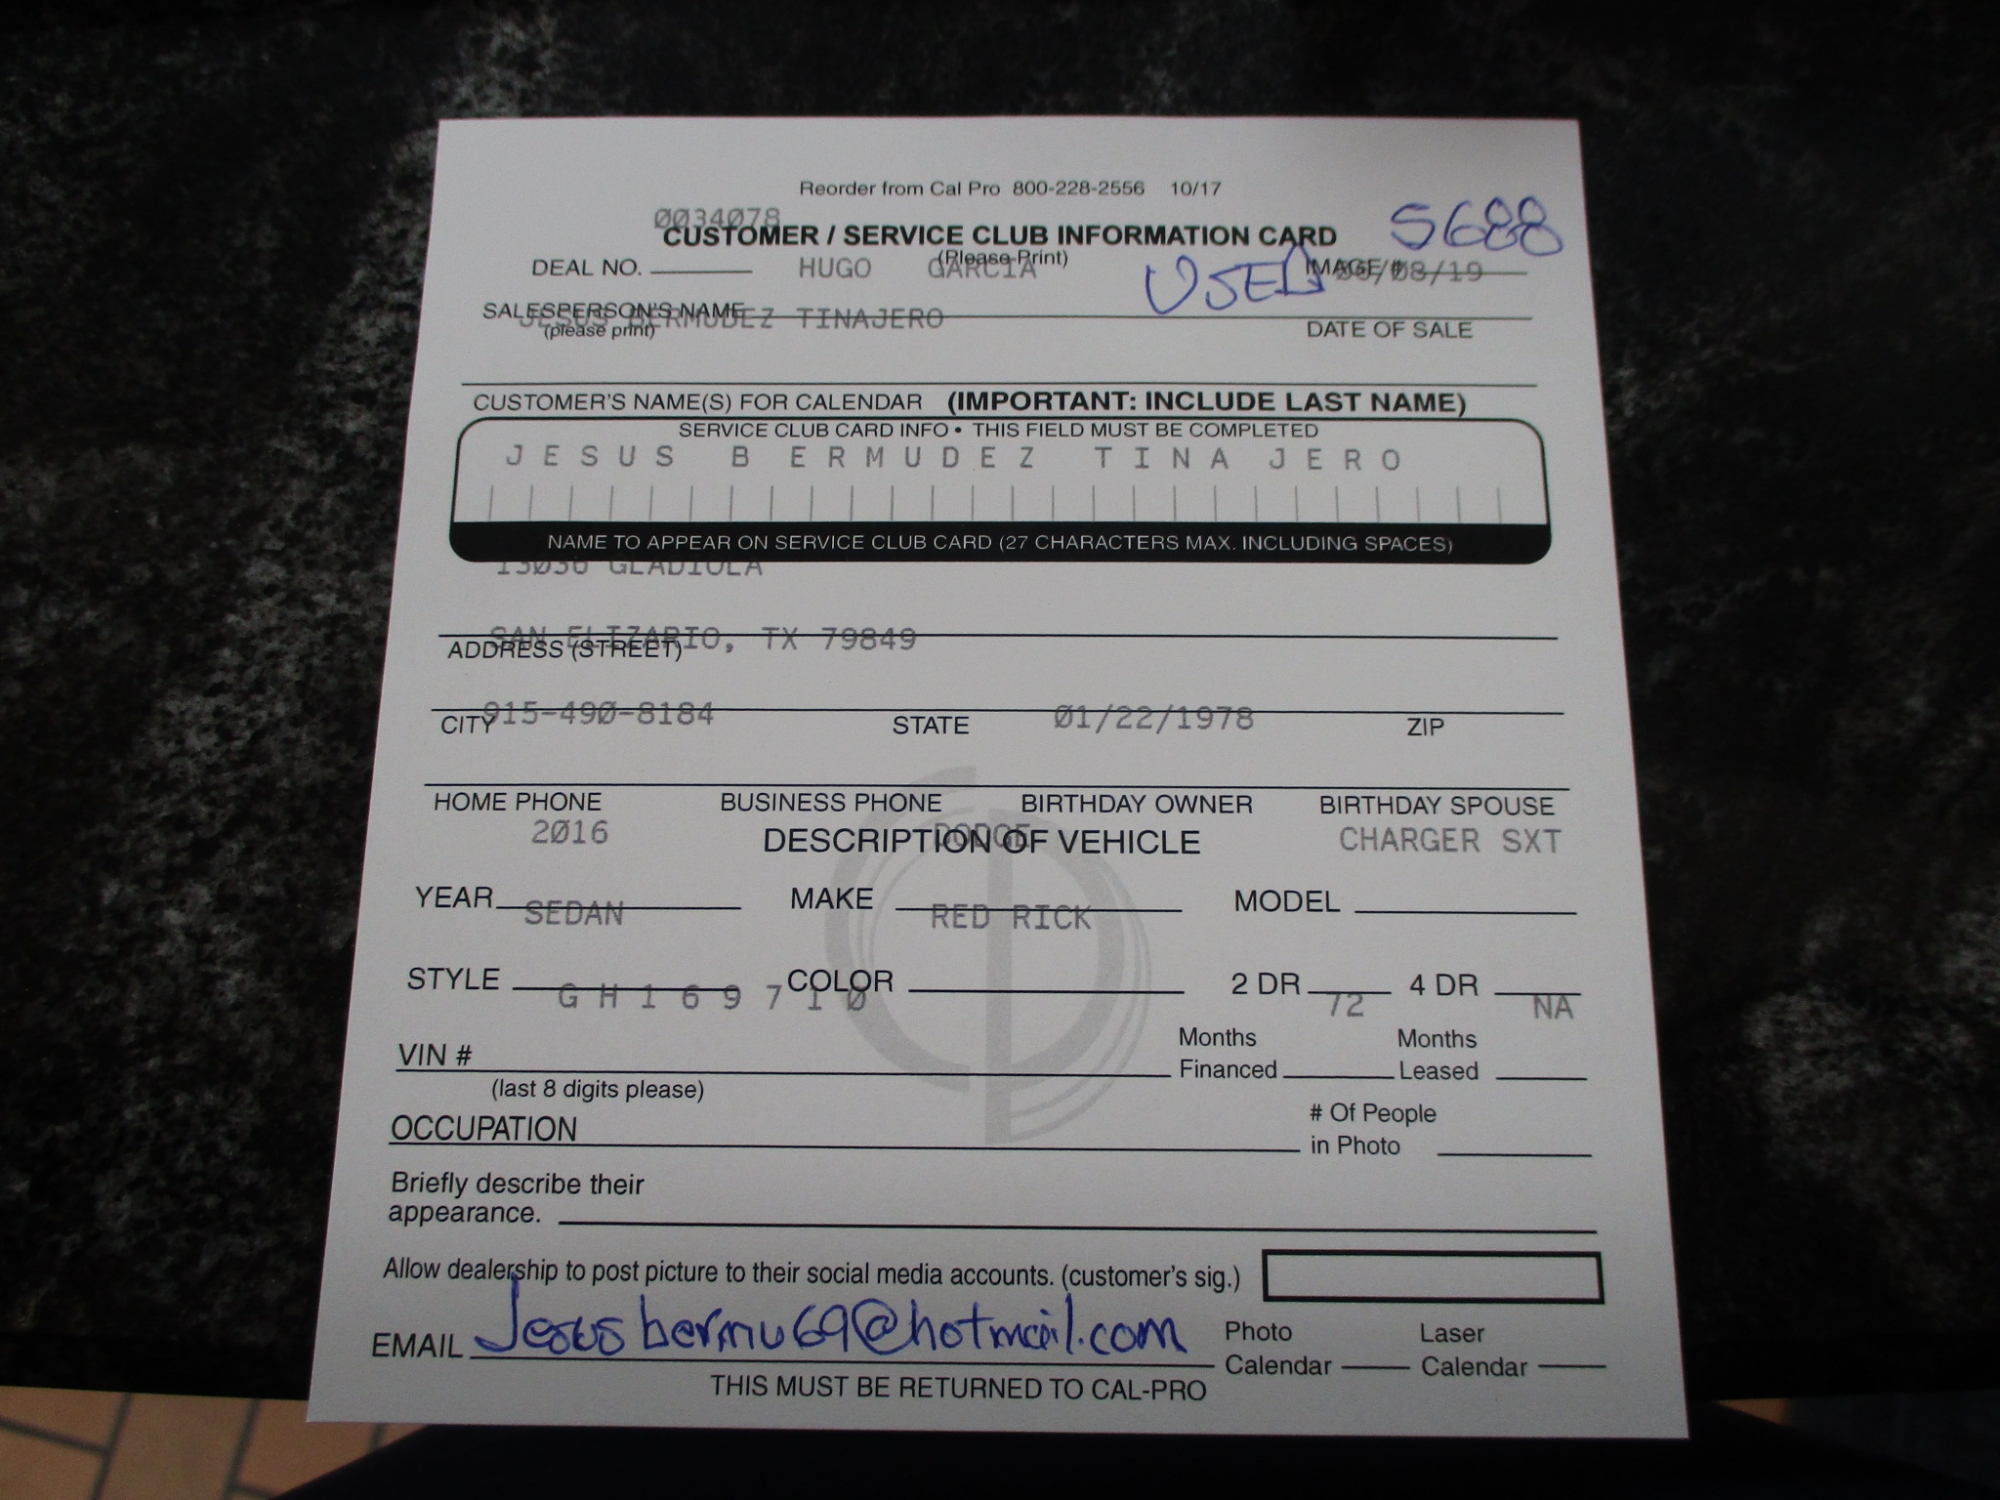 Reorder from Cal Pro 800-228-2556 10/17
0034078
CUSTOMER / SERVICE CLUB INFORMATION CARD 5688
(Please Print)
DEAL NO. HUGO GARCIA USED IMAGE # /08/19
SALESPERSON'S NAME JESUS BERMUDEZ TINAJERO
(please print) DATE OF SALE
CUSTOMER'S NAME(S) FOR CALENDAR (IMPORTANT: INCLUDE LAST NAME)
SERVICE CLUB CARD INFO • THIS FIELD MUST BE COMPLETED
JESUS BERMUDEZ TINAJERO
NAME TO APPEAR ON SERVICE CLUB CARD (27 CHARACTERS MAX. INCLUDING SPACES)
13036 GLADIOLA
SAN ELIZARIO, TX 79849
ADDRESS (STREET)
915-490-8184 01/22/1978
CITY STATE ZIP
HOME PHONE BUSINESS PHONE BIRTHDAY OWNER BIRTHDAY SPOUSE
2016 DODGE CHARGER SXT
DESCRIPTION OF VEHICLE
YEAR MAKE MODEL
SEDAN RED RICK
STYLE COLOR 2 DR 4 DR
GH169710 72 NA
VIN # Months Financed Months Leased
(last 8 digits please)
OCCUPATION # Of People in Photo
Briefly describe their
appearance.
Allow dealership to post picture to their social media accounts. (customer's sig.)
EMAIL Jesusbermu69@hotmail.com Photo Calendar Laser Calendar
THIS MUST BE RETURNED TO CAL-PRO